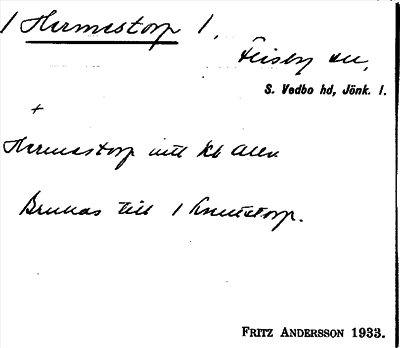 1 Hermestorp 1.
Flisby sn,
S. Vedbo hd, Jönk. l.
+
Hermestorp mtl kb Allen
Brukas till 1 Knutstorp.
FRITZ ANDERSSON 1933.